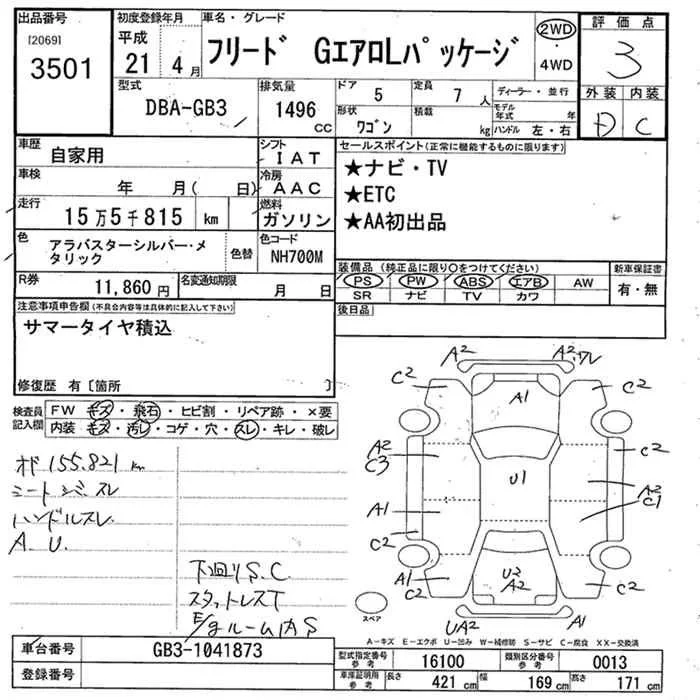 出品番号
[2069]
3501
初度登録年月
平成
21 4 月
車名・グレード
フリード GエアロLパッケージ
2WD
・
4WD
評価点
3
外装 内装
D C
型式
DBA-GB3
排気量
1496
CC
ドア
5
定員
7 人
形状
ワゴン
積載
kg
ディーラー・並行
モデル年式 年
ハンドル 左・右
車歴
自家用
シフト
IAT
車検
年 月( 日)
冷房
AAC
走行
15万5千815 km
燃料
ガソリン
色
アラバスターシルバー・メタリック
色替
色コード
NH700M
R券
11,860 円
名変通知期限
月 日
セールスポイント(正常に機能するものに限ります)
★ナビ・TV
★ETC
★AA初出品
装備品(純正品に限り○をつけてください)
PS PW ABS エアB AW
SR ナビ TV カワ
新車保証書
有・無
後日品
注意事項申告欄(不具合内容等は具体的に記入して下さい)
サマータイヤ積込
修復歴 有〔箇所 〕
検査員記入欄
FW キズ・飛石・ヒビ割・リペア跡・×要
内装 キズ・汚レ・コゲ・穴・スレ・キレ・破レ
オド 155.821 km
シートジバスレ
ハンドルスレ
A.U.
下廻りS.C
スタットレスT
E/gルーム内S
A2 A2,ワレ
C2 A1 C2
A2
C3 C2
U1
A2
C1
A1
C2
A1
C2
U2
A2
C2
UA2 A1
スペア
A-キズ E-エクボ U-凹み W-補修跡 S-サビ C-腐食 XX-交換済
車台番号
GB3-1041873
登録番号
型式指定番号
参考
16100
類別区分番号
参考
0013
車庫証明用
参考
長さ 421 cm
幅 169 cm
高さ 171 cm